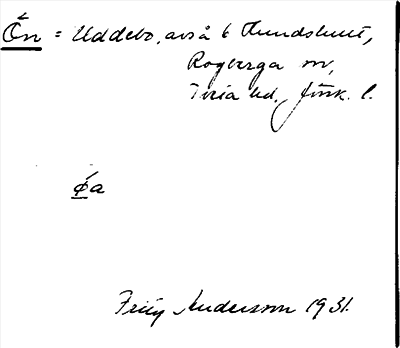 Ön = Uddebo, avså b Hundshult,
Rogberga sn,
Tveta hd, Jönk. l.
öa
Fritz Anderson 1931.